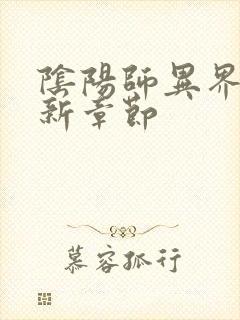 陰陽師異界
新章節
慕容孤行